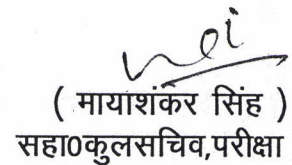 ( मायाशंकर सिंह )
सहा0कुलसचिव,परीक्षा